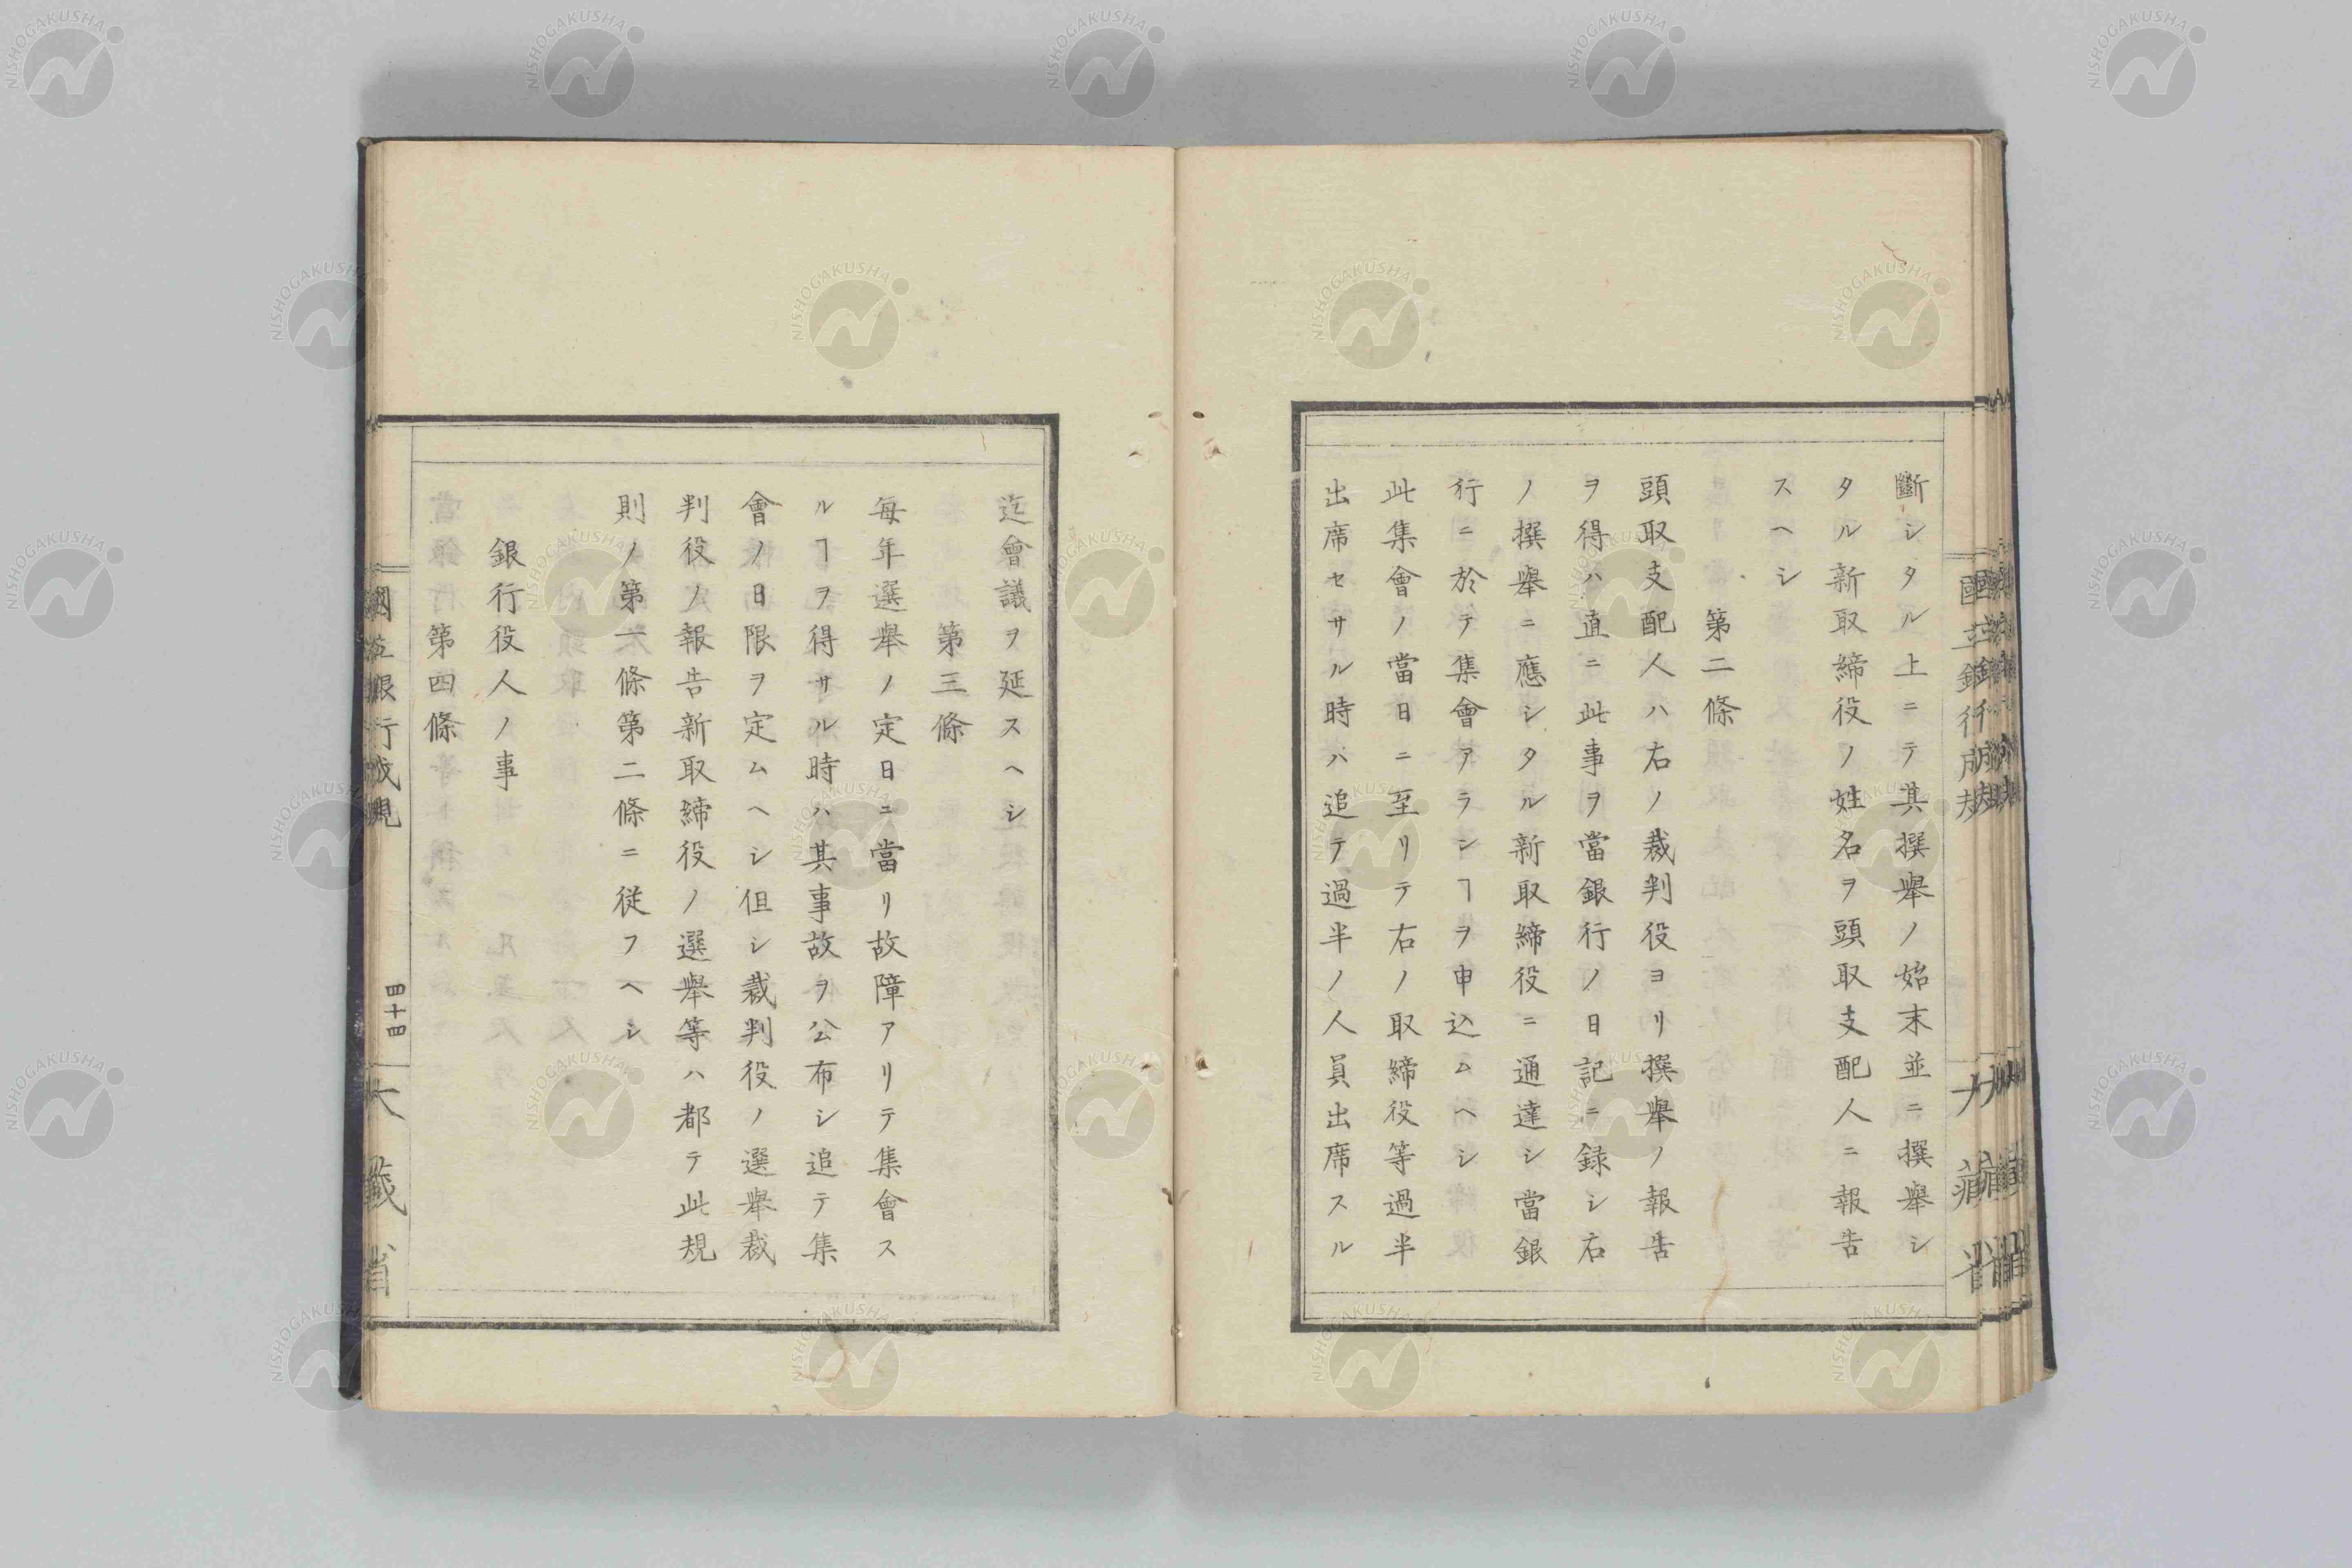 斷シタル上ニテ其撰擧ノ始末並ニ撰擧シ
タル新取締役ノ姓名ヲ頭取支配人ニ報告
スヘシ
第二條
頭取支配人ハ右ノ裁判役ヨリ撰擧ノ報告
ヲ得ハ直ニ此事ヲ當銀行ノ日記ニ録シ右
ノ撰擧ニ應シタル新取締役ニ通達シ當銀
行ニ於テ集會アランヿヲ申込ムヘシ
此集會ノ當日ニ至リテ右ノ取締役等過半
出席セサル時ハ追テ過半ノ人員出席スル
迄會議ヲ延スヘシ
第三條
毎年選擧ノ定日ニ當リ故障アリテ集會ス
ルヿヲ得サル時ハ其事故ヲ公布シ追テ集
會ノ日限ヲ定ムヘシ但シ裁判役ノ選擧裁
判役ノ報告新取締役ノ選擧等ハ都テ此規
則ノ第一條第二條ニ従フヘシ
銀行役人ノ事
第四條
國立銀行成規
四十四
大藏省
NISHOGAKUSHA